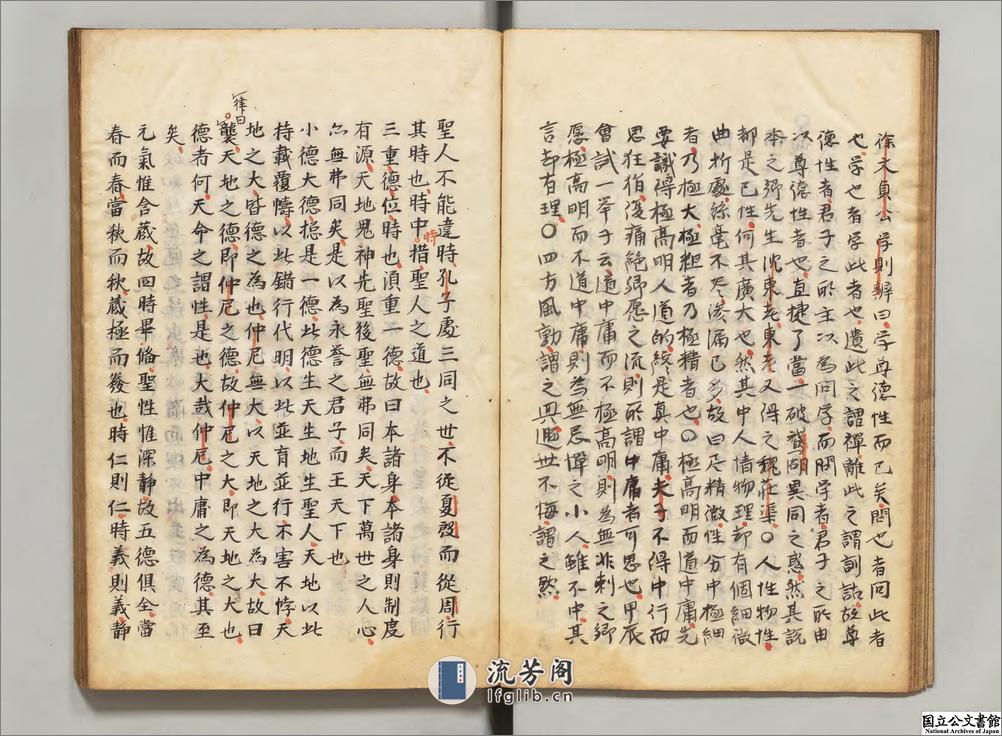 徐文貞公學則辯曰學尊德性而已矣問也者问此者
也学也者学此者也遺此之謂禪離此之謂訓詁故尊
德性者君子之所主以為问学而問学者君子之所由
以尊德性者也直捷了當一破聾瞶異同之惑然其説
本之鄉先生沈東老東老又得之魏莊渠〇人性物性
都是已性何其廣大也然其中人情物理却有個細微
曲折處絲毫不尽滲漏已多故曰尽精微性分中極細
者乃極大極粗者乃極精者也〇極高明而道中庸先
要識得極高明人道的終是真中庸夫子不得中行而
思狂狷後痛絕鄉愿之流則所謂中庸者可思也甲辰
會試一舉子云道中庸而不極高明則為無非刺之鄉
愿極高明而不道中庸則為無忌憚之小人雖不中其
言却有理〇四方風動謂之興遯世不悔謂之默
聖人不能違時孔子處三同之世不從夏殷而從周行
其時也時中措聖人之道也
時
三重德位時也湏重一德故曰本諸身本諸身則制度
有源天地鬼神先聖後聖無弗同矣天下萬世之人心
尒無弗同矣是以為永誉之君子而王天下也
小德大德捴是一德此德生天生地生聖人天地以此
持載覆幬以此錯行代明以此並育並行不害不悖天
地之大皆德之為也仲尼無大以天地之大為大故曰
律曰
襲天地之德即仲尼之德故仲尼之大即天地之大也
德者何天命之謂性是也大哉仲尼中庸之為德其至
矣
元氣惟含藏故四時畢俻聖性惟深静故五德俱全當
春而春當秋而秋藏極而發也時仁則仁時義則義静
流芳阁
lfglib.cn
国立公文書館
National Archives of Japan